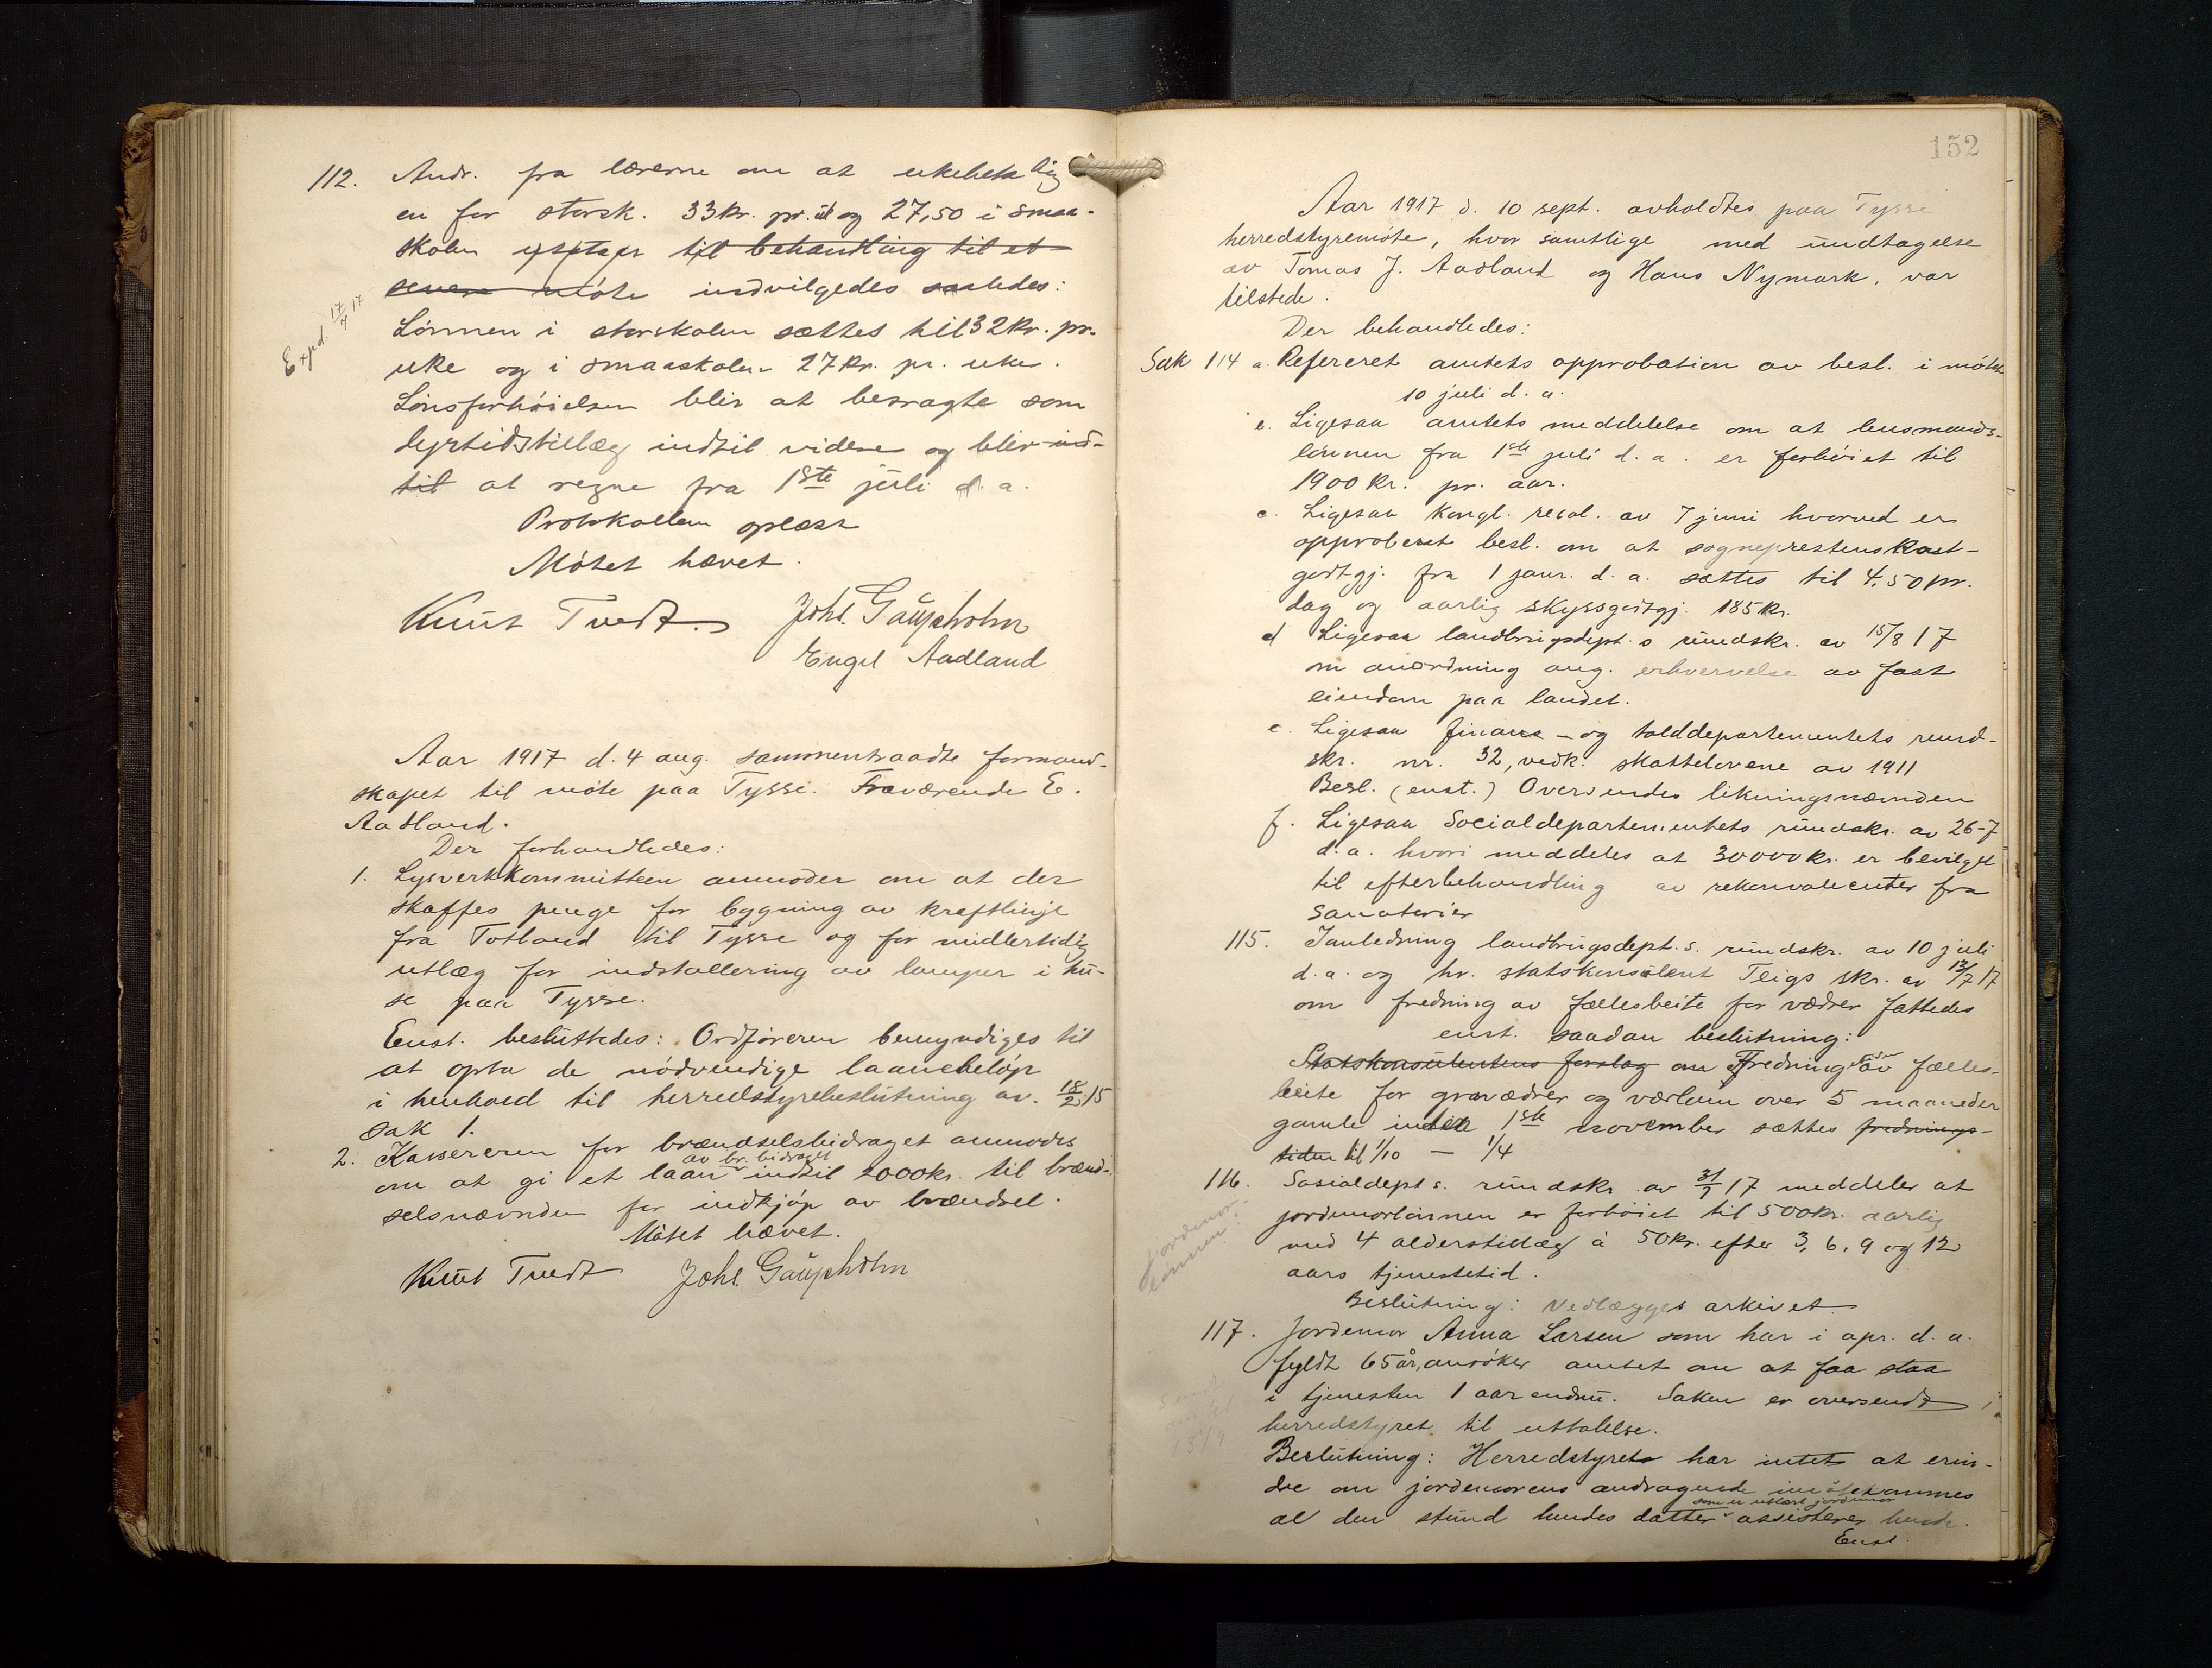 112. Andr. fra lærerne om at ukebetaling
en for storsk. 33kr. pr. u og 27,50 i smaa-
skolen utsættes til behandling til et
senere møte indvilgedes saaledes:
Expd. 17/7 17
Lønnen i storskolen sættes til 32kr. pr.
uke og i smaaskolen 27kr. pr. uke.
Lønsforhøielsen blir at betragte som
dyrtidstillæg indtil videre og blir ind-
til at regne fra 1ste juli d. a.
Protokollen oplæst
Møtet hævet.
Knut Tvedt. Johs. Gaupholm
Engel Aadland
Aar 1917 d. 4 aug. sammentraadte formand-
skapet til møte paa Tysse. Fraværende E.
Aadland.
Der forhandledes:
1. Lysverkkommitteen anmoder om at der
skaffes penge for bygning av kraftlinje
fra Totland til Tysse og for midlertidig
utlæg for indstallering av lamper i hu-
se paa Tysse.
Enst. besluttedes: Ordføreren bemyndiges til
at opta de nødvendige laanebeløp
i henhold til herredstyrebeslutning av. 18/2 15
sak 1.
2. Kassereren for brændselsbidraget anmodes
av br. bidraget
om at gi et laan indtil 2000kr. til brænd-
selsnævnden for indkjøp av brændsel.
Møtet hævet.
Knut Tvedt Johs. Gaupholm
152
Aar 1917 d. 10 sept. avholdtes paa Tysse
herredstyremøte, hvor samtlige med undtagelse
av Tomas J. Aadland og Hans Nymark, var
tilstede.
Der behandledes:
Sak 114 a. Refereret amtets approbation av besl. i møtet
10 juli d. a.
Ligesaa amtets meddelelse om at lensmands-
lønnen fra 1ste juli d. a. er forhøiet til
1900 kr. pr. aar.
c. Ligesaa kongl. resol. av 7 juni hvorved er
approberet besl. om at sogneprestens kost-
godtgj. fra 1 janr. d. a. sættes til 4,50 pr.
dag og aarlig skyssgodtgj. 185kr.
d Ligesaa landbrugsdept.s rundskr. av 15/8 17
om anordning ang. erhvervelse av fast
eiendom paa landet.
e. Ligesaa finans- og tolddepartementets rund-
skr. nr. 32, vedk. skattelovene av 1911
Besl. (enst.) Oversendes likningsnævnden
f. Ligesaa Socialdepartementets rundskr. av 26-7
d. a. hvori meddeles at 30000kr. er bevilget
til efterbehandling av rekonvalecenter fra
sanatorier
115. I anledning landbrugsdept.s. rundskr. av 10 juli
d. a. og hr. statskonsulent Teigs skr. av 13/7 17
om fredning av fællesbeite for vædrer fattedes
enst. saadan beslutning:
Statskonsulentens forslag om Fredning av fælles-
beite for gravædrer og værlam over 5 maaneder
gamle inden 1ste november sættes frednings-
tiden til 1/10 — 1/4
116. Sosialdepts. rundskr. av 31/7 17 meddeler at
jordemorlønnen er forhøiet til 500kr. aarlig
med 4 alderstillæg à 50kr. efter 3, 6, 9 og 12
aars tjenestetid.
Jordemor-
lønnen.
Beslutning: Vedlægges arkivet.
117. Jordemor Anna Larsen som har i apr. d. a.
fyldt 65 år, ansøker amtet om at faa staa
i tjenesten 1 aar endnu. Saken er oversendt
herredstyret til uttalelse.
Beslutning: Herredstyret har intet at erin-
dre om jordemorens andragende imøtekommes
som er utlært jordemor
al den stund hendes datter assisterer hende.
Enst.